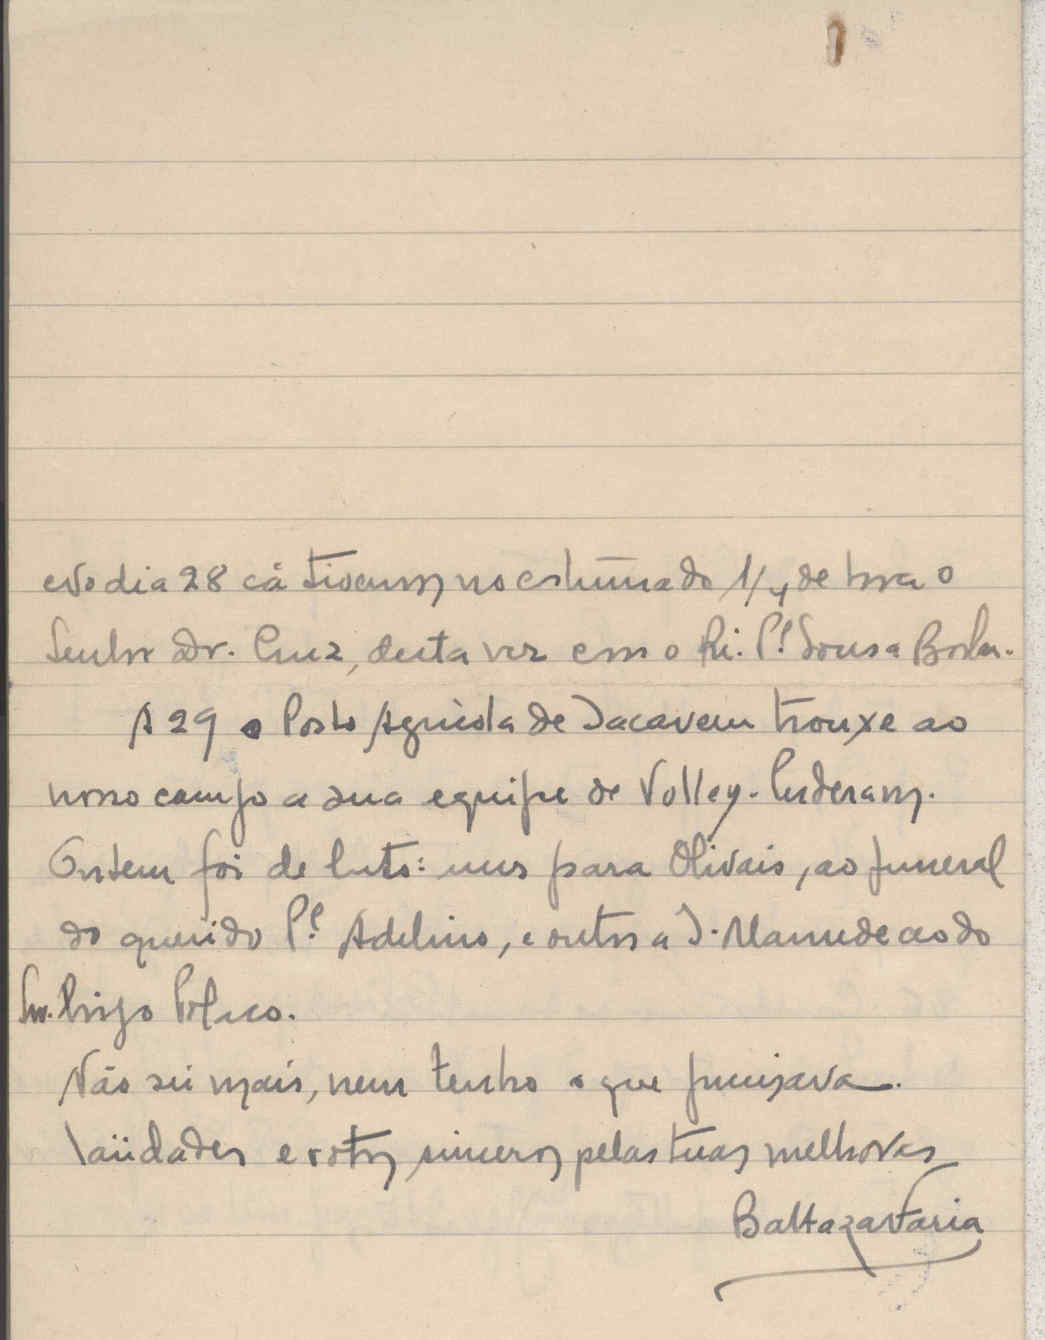 No dia 28 cá tivemos no costumado 1/4 de hora o
Senhor Dr. Cruz, desta vez com o Rv. P.e Sousa Borba.
A 29 o Posto Agrícola de Sacavem trouxe ao
nosso campo a sua equipe de Volley. Perderam.
Ontem foi de luto: uns para Olivais, ao funeral
do querido P.e Adelino, e outros a S. Mamede ao do
Snr. Polaco.
Não sei mais, nem tenho o que precisava.
Saüdades e votos sinceros pelas tuas melhoras
Baltazar Faria